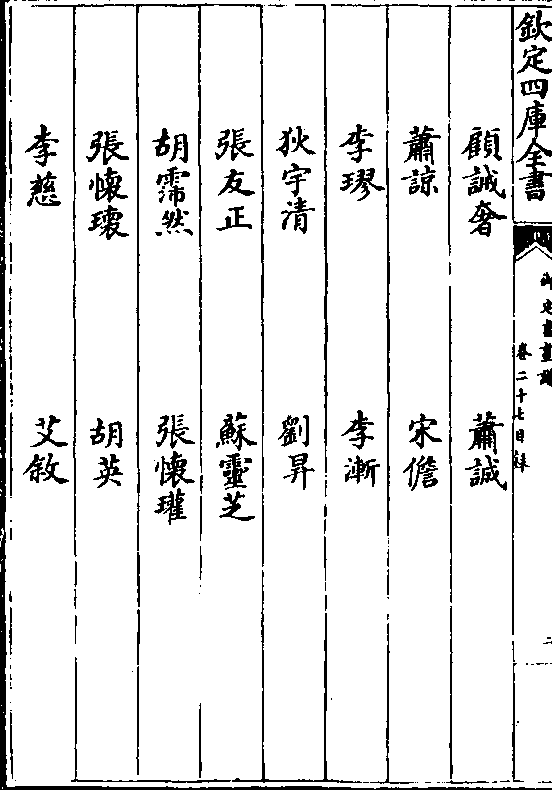 欽定四庫全書
御定書畫譜
卷二十七目録
二
顧誠奢 蕭誠
蕭諒 宋儋
李璆 李漸
狄宇清 劉昇
張友正 蘇靈芝
胡霈然 張懷瓘
張懷瓌 胡英
李慈 艾敘